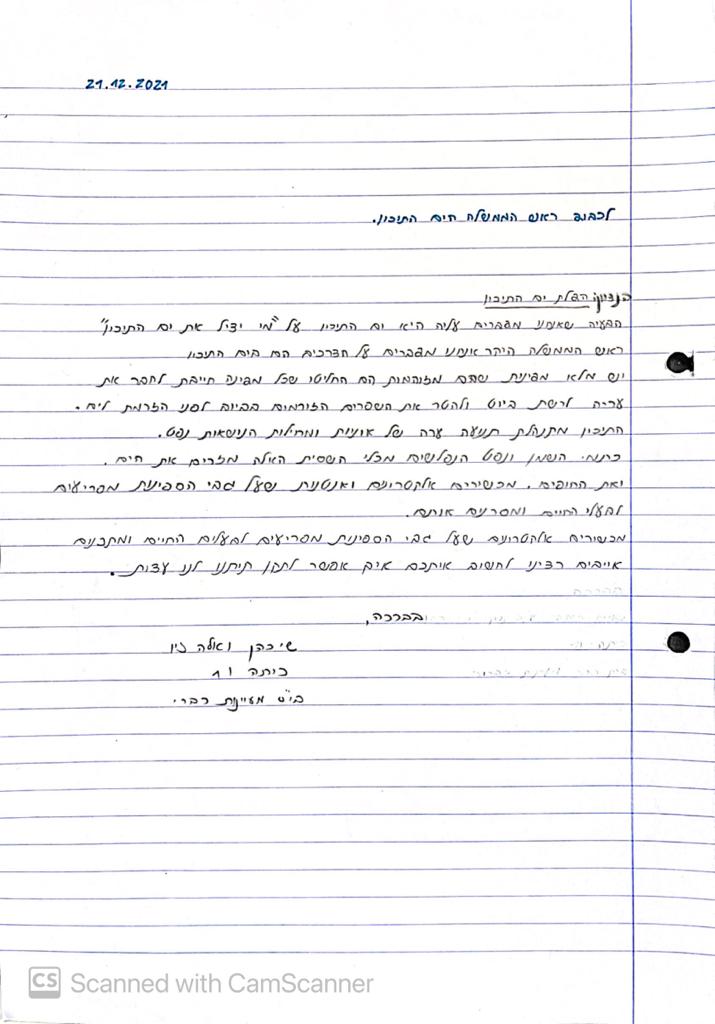 21.12.2021
לכבוד ראש הממשלה הים התיכון.
הנדון: הצלת ים התיכון
הבעיה שאנחנו מדברים עליה היא ים התיכון על "מי יציל את ים התיכון"
ראש הממשלה היקר אנחנו מדברים על הצרכים הם בים התיכון
יש מלא מדינות שהם מזוהמות הם החליטו שכל מדינה חייבת לחבר את
עריה לרשת ביוב ולהטר את השפכים הזורמים בביוב לפני הזרמת לים.
התיכון מתנהלת תנועה ערה של אוניות ומחילות הנישאות נפט.
השמן ונפט הנפלשים מכלי השסית האלה מזהמים את הים.
ואת החופים. מכשירים אלקטרונים ואנטנות שעל גבי הספינות מפריעים
לבעלי החיים ומסרנים אותם.
מכשירים אלקטרונים שעל גבי הספינות מפריעים לבעלים החיים ומתכננים
אייבים רצינו לחשוב איתכם איך אפשר לתקן תיתנו לנו עצות.
בברכה,
שי כהן ואלה זיו
כיתה ו 1
בי"ס מעיינות
CS Scanned with CamScanner